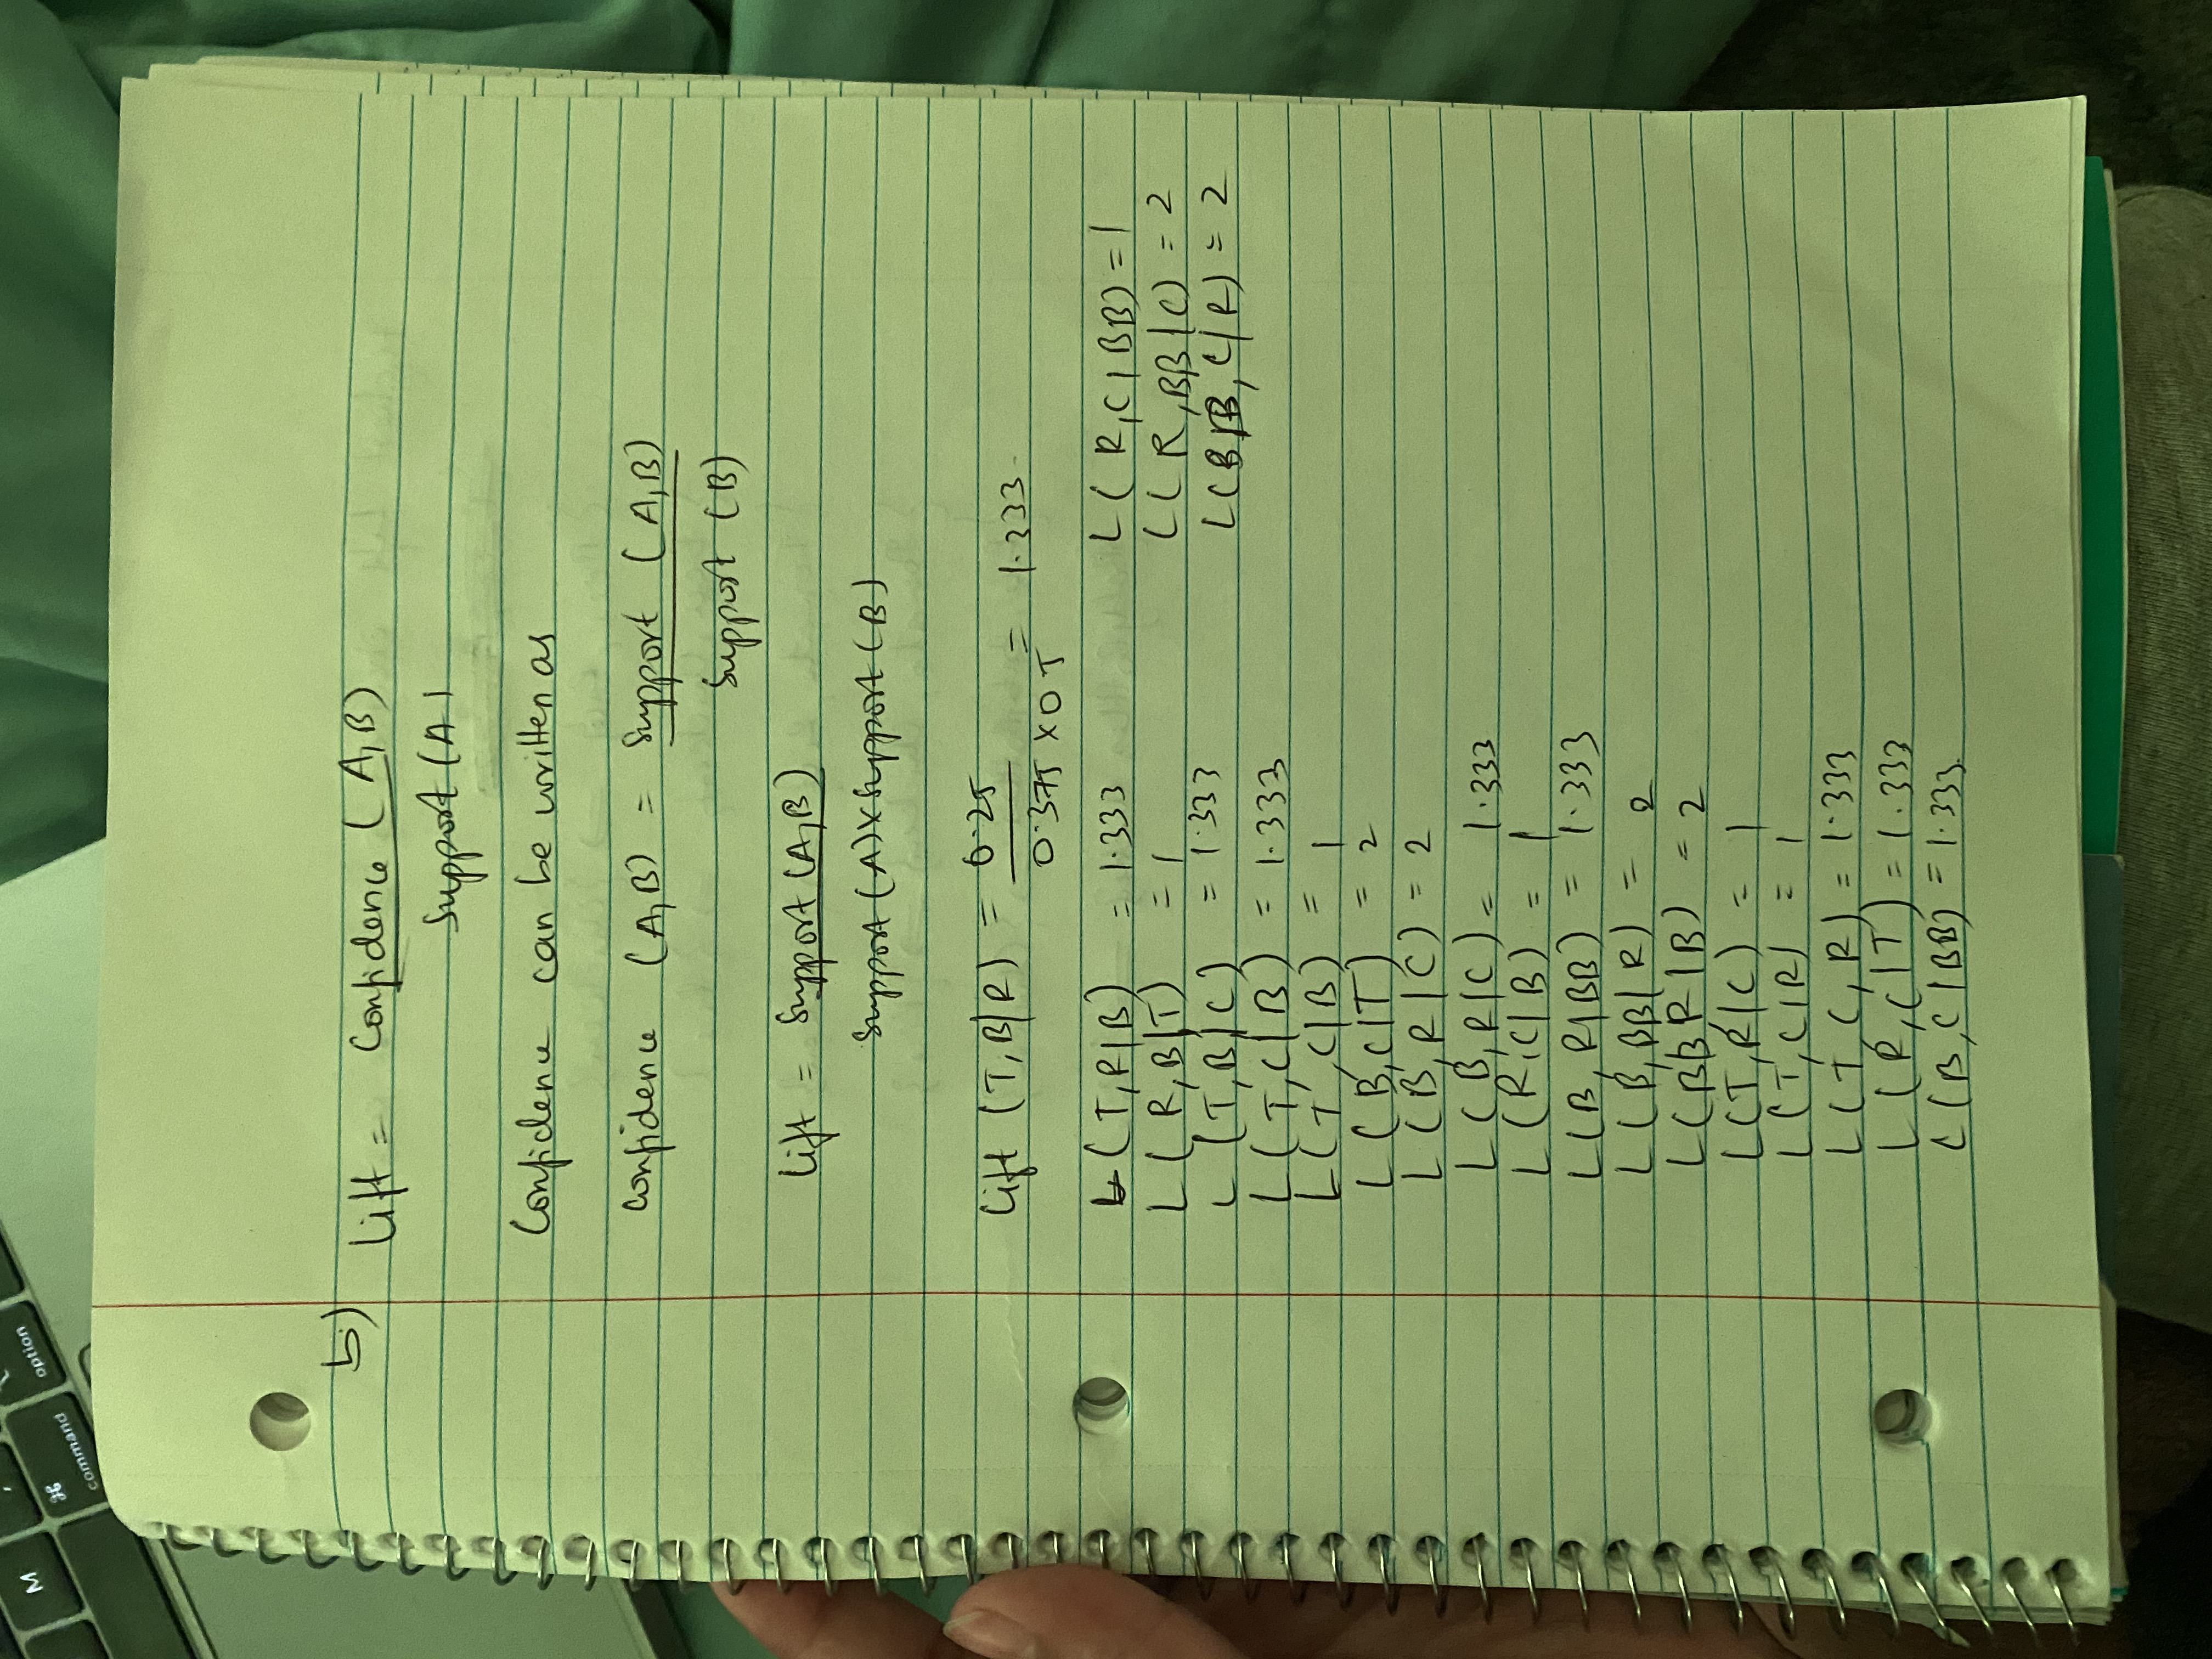 5) Lift = Confidence (A,B)
Support (A)
Confidence can be written as
Confidence (A,B) = Support (A,B)
Support (B)
Lift = Support (A,B)
Support (A) x Support (B)
Lift (T,B|R) = 0.25 = 1.333
0.375 x 0.5
L (T,R|B) = 1.333
L (R,B|T) = 1
L (T,B|C) = 1.333
L (T,C|B) = 1.333
L (T,C|B) = 1
L (B,C|T) = 2
L (B,R|C) = 2
L (B,R|C) = 1.333
L (R,C|B) = 1
L (B,R|BB) = 1.333
L (B,BB|R) = 2
L (BB,R|B) = 2
L (T,R|C) = 1
L (T,C|R) = 1
L (T,C,R) = 1.333
L (R,C|T) = 1.333
L (B,C|BB) = 1.333
L (R,C|BB) = 1
L (R,BB|C) = 2
L (BB,C|R) = 2
option
command
⌘
M